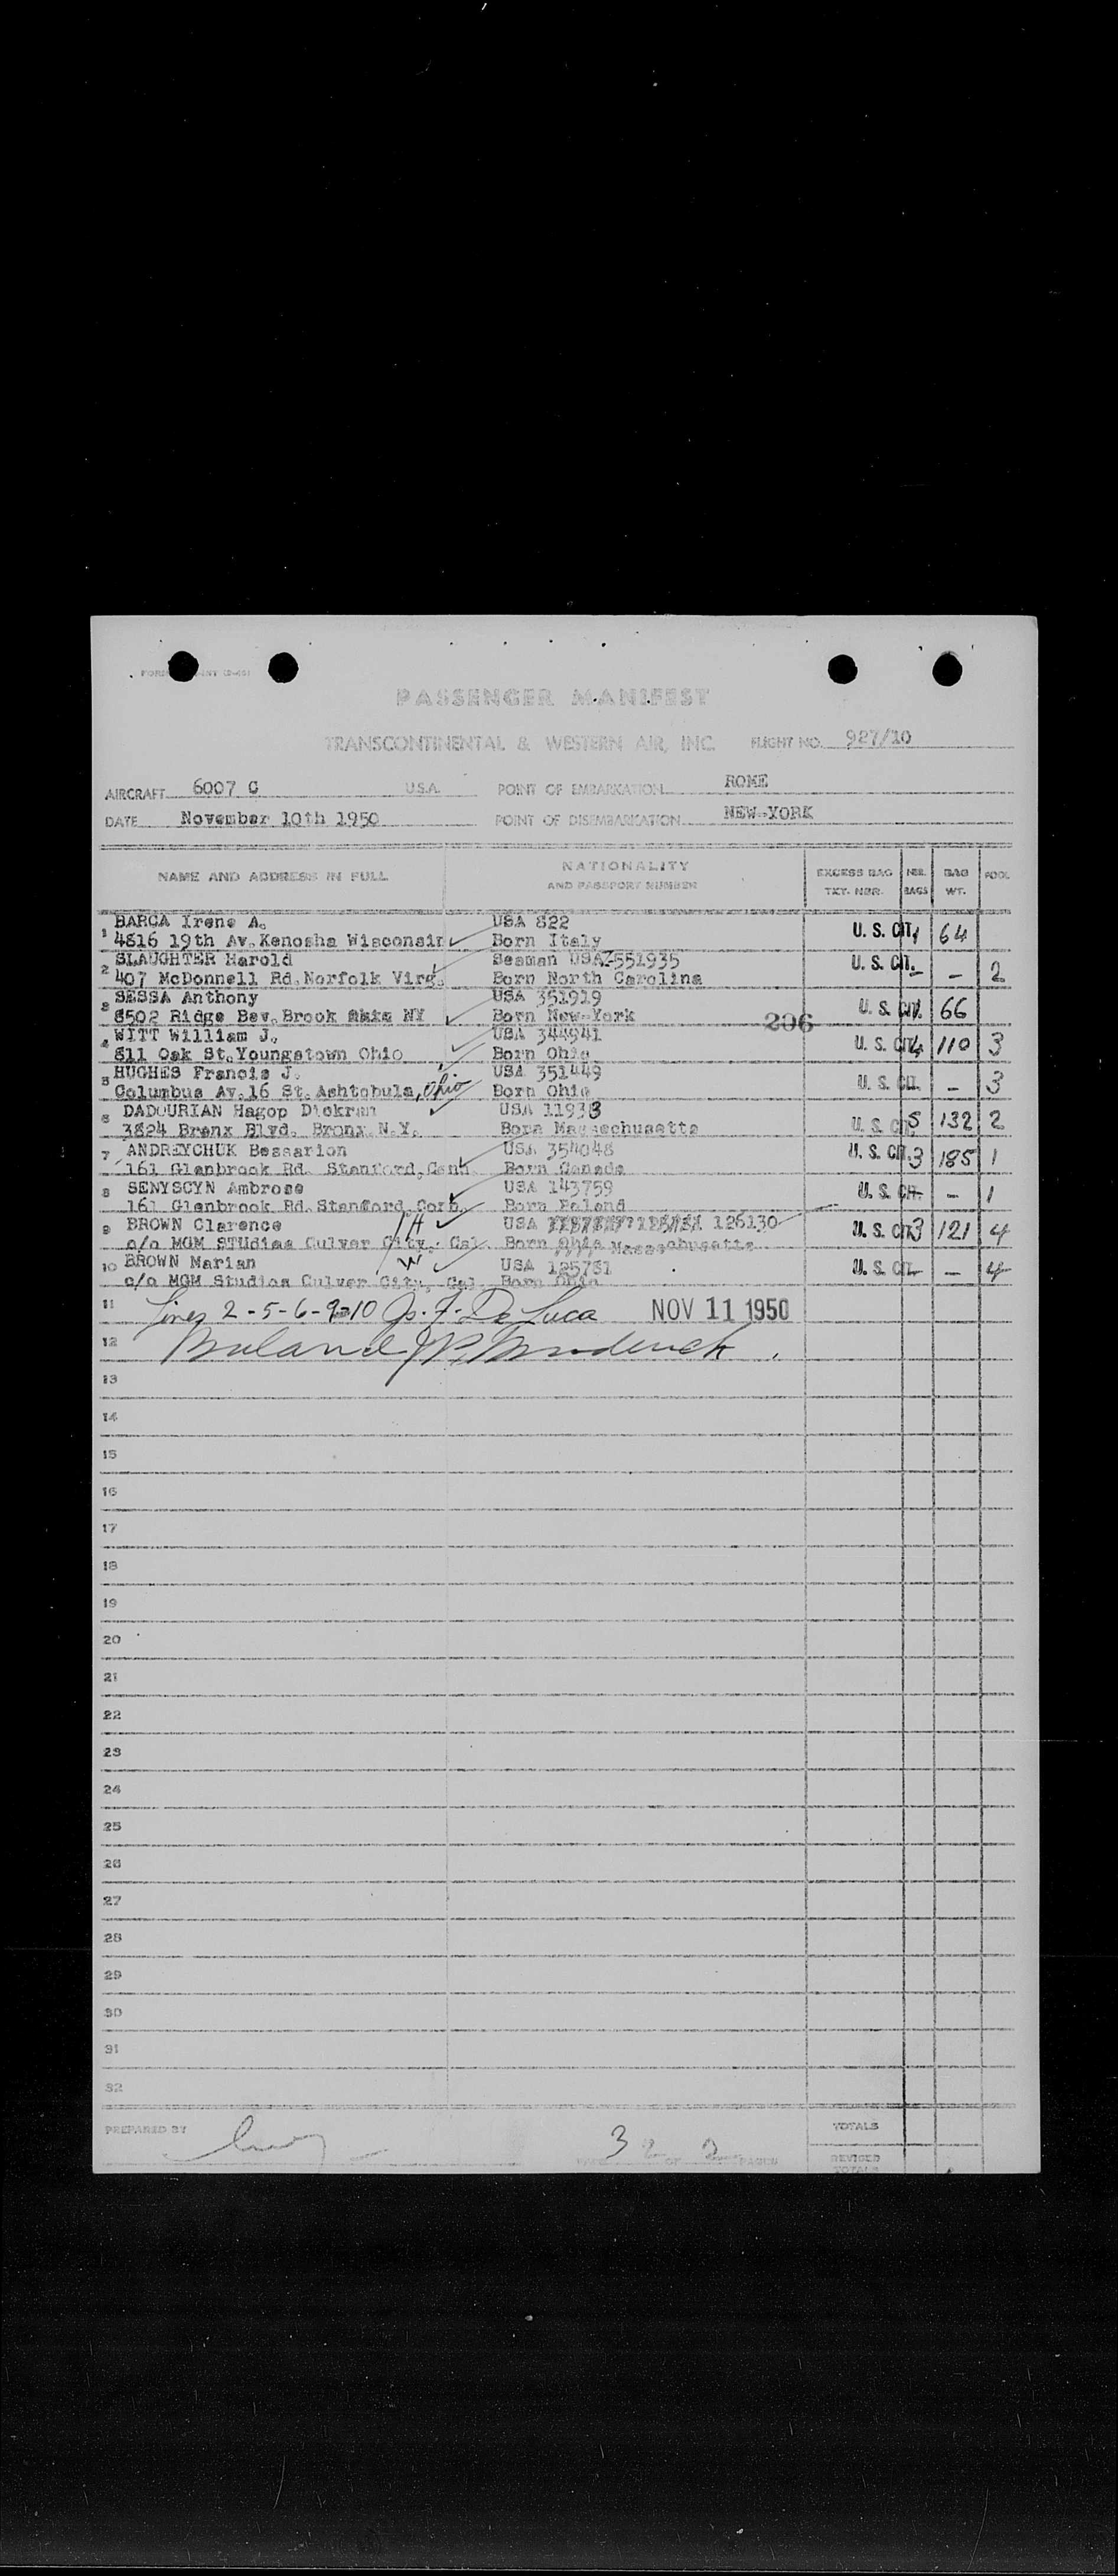 PASSENGER MANIFEST
TRANSCONTINENTAL & WESTERN AIR, INC. FLIGHT NO. 927/10
AIRCRAFT 6007 C U.S.A. POINT OF EMBARKATION ROME
DATE November 10th 1950 POINT OF DISEMBARKATION NEW-YORK
NAME AND ADDRESS IN FULL NATIONALITY AND PASSPORT NUMBER EXCESS BAG TKT. NBR. NBR. BAGS BAG WT. POOL
1 BARCA Irene A. USA 822
4816 19th Av. Kenosha Wisconsin Born Italy U. S. CIT. 1 64
2 SLAUGHTER Harold Seaman USA Z551935
407 McDonnell Rd. Norfolk Virg. Born North Carolina U. S. CIT. - - 2
3 SESSA Anthony USA 351919
8502 Ridge Bev. Brook NY Born New-York 206 U. S. CIT. 66
4 WITT William J. USA 344941
811 Oak St. Youngstown Ohio Born Ohio U. S. CIT. 4 110 3
5 HUGHES Francis J. USA 351449
Columbus Av. 16 St. Ashtobula, Ohio Born Ohio U. S. CIT. - 3
6 DADOURIAN Hagop Dickran USA 11933
3824 Bronx Blvd. Bronx N.Y. Born Massachusetts U. S. CIT. 5 132 2
7 ANDREYCHUK Bessarion USA 354048
161 Glenbrook Rd. Stanford, Conn. Born Canada U. S. CIT. 3 185 1
8 SENYSCYN Ambrose USA 143759
161 Glenbrook Rd. Stanford, Born Poland U. S. CIT. - 1
9 BROWN Clarence H USA 126130
c/o MGM STUdios Culver City, Cal. Born Massachusetts U. S. CIT. 3 121 4
10 BROWN Marian W USA 125761
c/o MGM Studios Culver City, Cal Born Ohio U. S. CIT. - - 4
11 Lines 2-5-6-9-10 Jo. F. De Luca NOV 11 1950
12
13
14
15
16
17
18
19
20
21
22
23
24
25
26
27
28
29
30
31
32
PREPARED BY 3 2 OF 2 PAGES TOTALS
REVISED TOTALS